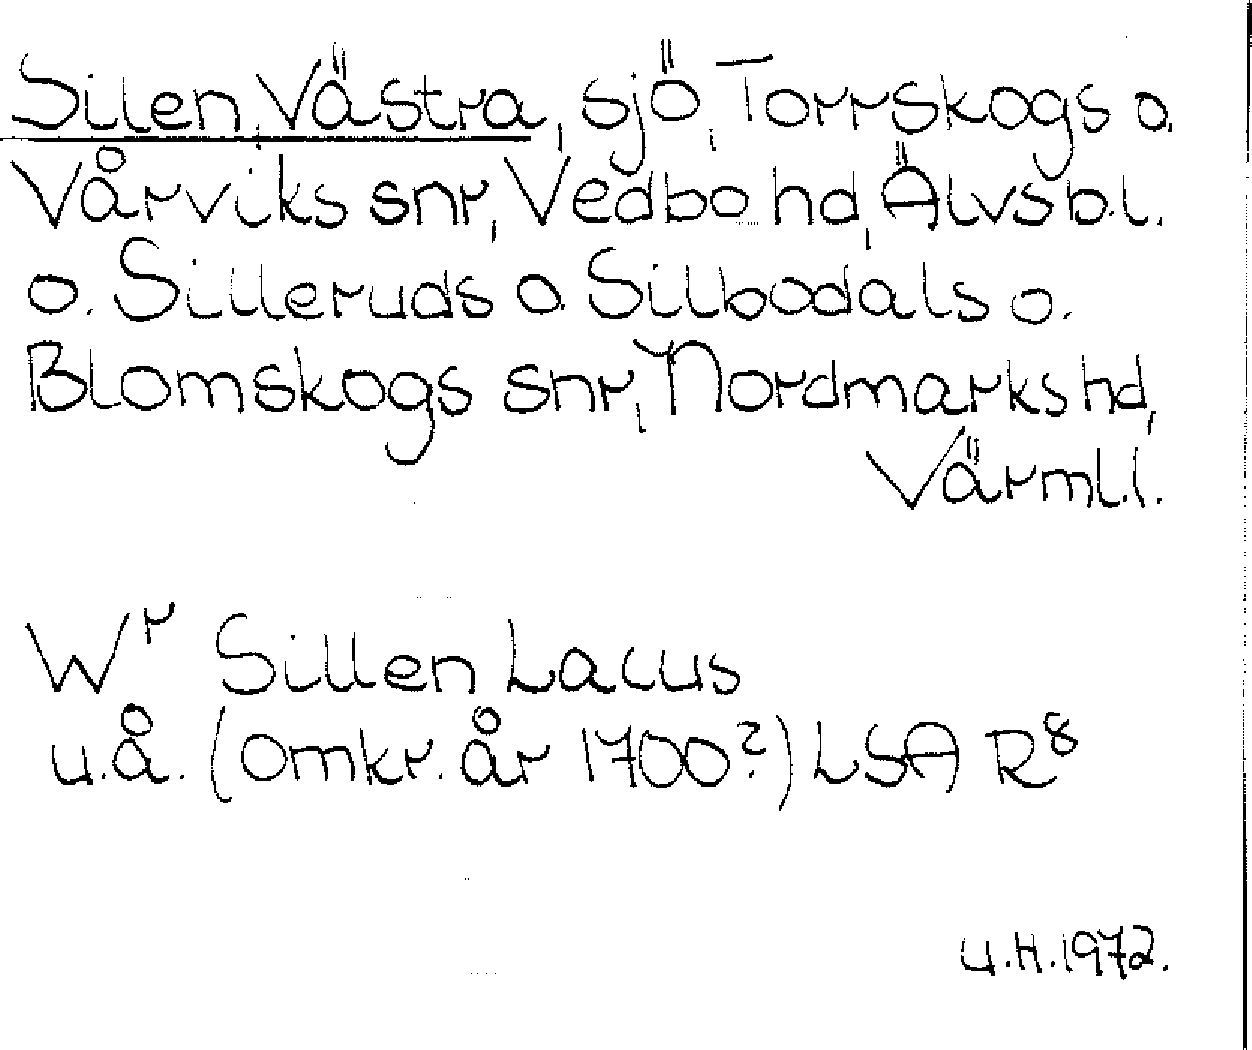 Silen, Västra, sjö, Torrskogs o.
Vårviks snr, Vedbo hd, Älvsb.l.
o. Silleruds o. Silbodals o.
Blomskogs snr, Nordmarks hd,
Värml.l.
Wr Sillen Lacus
u.å. (omkr. år 1700?) LSA R8
U.H. 1972.